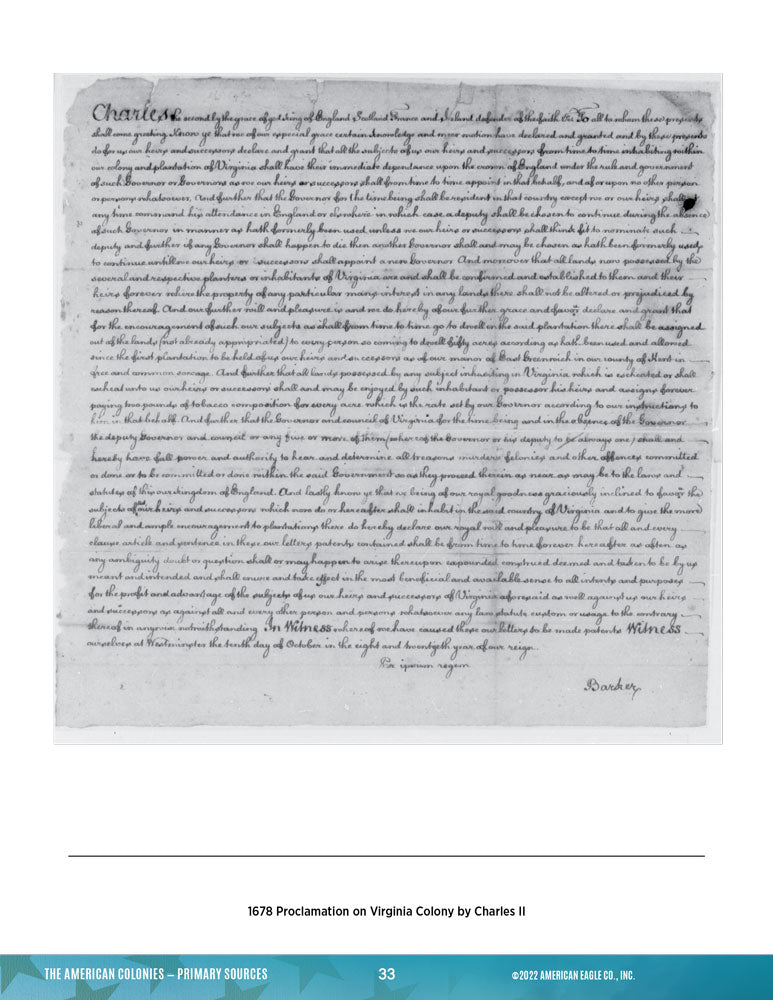 Charles the second by the grace of god king of England Scotland France and Ireland defender of the faith &c To all to whom these presents
shall come greeting Know ye that we of our especial grace certain knowledge and meer motion have declared and granted and by these presents
do for us our heirs and successors declare and grant that all the subjects of us our heirs and successors from time to time inhabiting within
our colony and plantation of Virginia shall have their immediate dependance upon the crown of England under the rule and government
of such Governor or Governors as we our heirs or successors shall from time to time appoint in that behalf, and of or upon no other person
or persons whatsoever. And further that the Governor for the time being shall be resident in that country except we or our heirs shall at
any time command his attendance in England or elsewhere in which case a deputy shall be chosen to continue during the absence
of such Governor in manner as hath formerly been used unless we our heirs or successors shall think fit to nominate such
deputy and further if any Governor shall happen to die then another Governor shall and may be chosen as hath been formerly used
to continue untill we our heirs or successors shall appoint a new Governor And moreover that all lands now possessed by the
several and respective planters or inhabitants of Virginia are and shall be confirmed and established to them and their
heirs forever where the property of any particular mans interest in any lands there shall not be altered or prejudiced by
reason thereof. And our further will and pleasure is and we do hereby of our further grace and favor declare and grant that
for the encouragement of such our subjects as shall from time to time go to dwell in the said plantation there shall be assigned
out of the lands (not already appropriated) to every person so coming to dwell fifty acres according as hath been used and allowed
since the first plantation to be held of us our heirs and successors as of our manor of East Greenwich in our county of Kent in
free and common soccage. And further that all lands possessed by any subject inhabiting in Virginia which is escheated or shall
escheat unto us our heirs or successors shall and may be enjoyed by such inhabitant or possessor his heirs and assigns forever
paying two pounds of tobacco composition for every acre which is the rate set by our Governor according to our instructions to
him in that behalf. And further that the Governor and council of Virginia for the time being and in the absence of the Governor
the deputy Governor and council or any five or more of them (whereof the Governor or his deputy to be always one) shall and
hereby have full power and authority to hear and determine all treasons murders felonies and other offences committed
or done or to be committed or done within the said Government so as they proceed therein as near as may be to the laws and
statutes of this our kingdom of England. And lastly know ye that we being of our royal goodness graciously inclined to favor the
subjects of us our heirs and successors which now do or hereafter shall inhabit in the said country of Virginia and to give the more
liberal and ample encouragement to plantations there do hereby declare our royal will and pleasure to be that all and every
clause article and sentence in these our letters patents contained shall be from time to time forever hereafter as often as
any ambiguity doubt or question shall or may happen to arise thereupon expounded construed deemed and taken to be by us
meant and intended and shall enure and take effect in the most beneficial and available sense to all intents and purposes
for the profit and advantage of the subjects of us our heirs and successors of Virginia aforesaid as well against us our heirs
and successors as against all and every other person and persons whatsoever any law statute custom or usage to the contrary
thereof in anywise notwithstanding In Witness whereof we have caused these our letters to be made patents Witness
ourselves at Westminster the tenth day of October in the eight and twentyeth year of our reign
Per ipsum regem
Barker
1678 Proclamation on Virginia Colony by Charles II
THE AMERICAN COLONIES – PRIMARY SOURCES
33
©2022 AMERICAN EAGLE CO., INC.